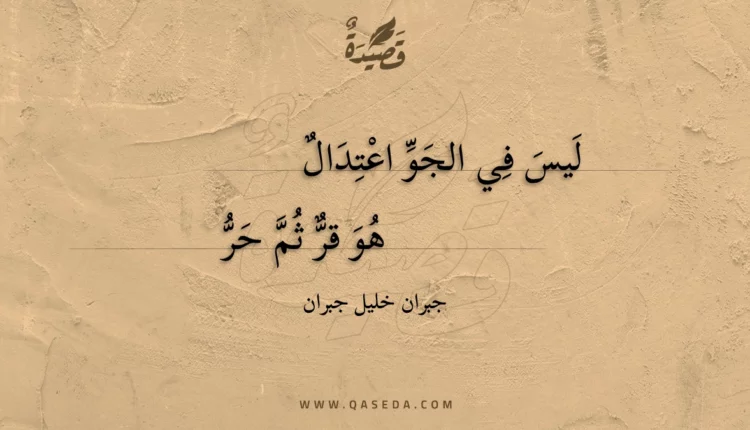 قَصِيْدَةٌ
لَيسَ فِي الجَوِّ اعْتِدَالٌ
هُوَ قرٌّ ثُمَّ حَرُّ
جبران خليل جبران
WWW.QASEDA.COM